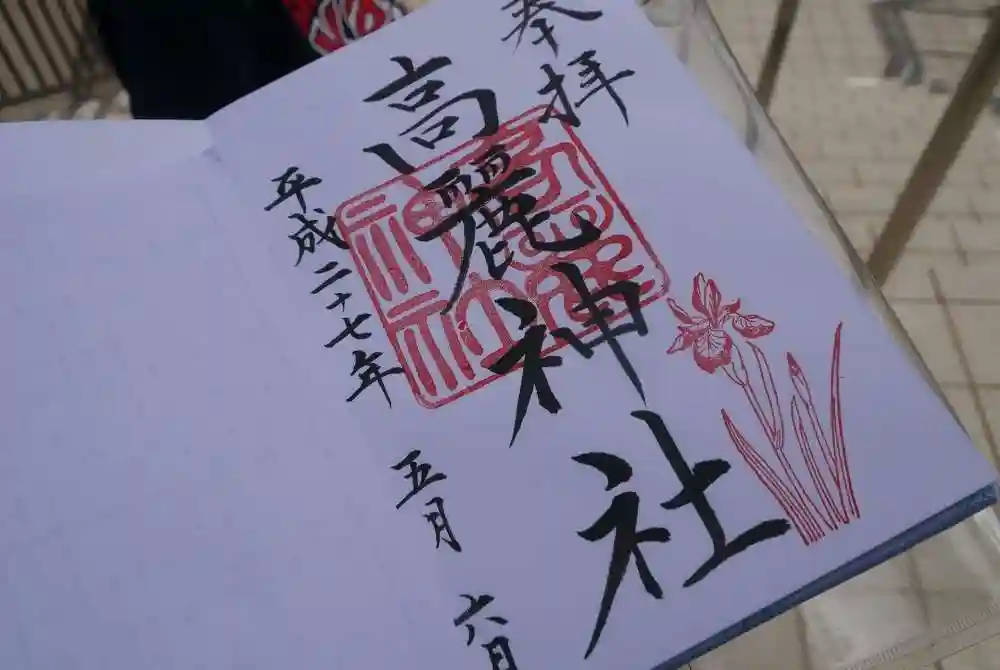 奉拝
高麗神社
平成二十七年五月六日